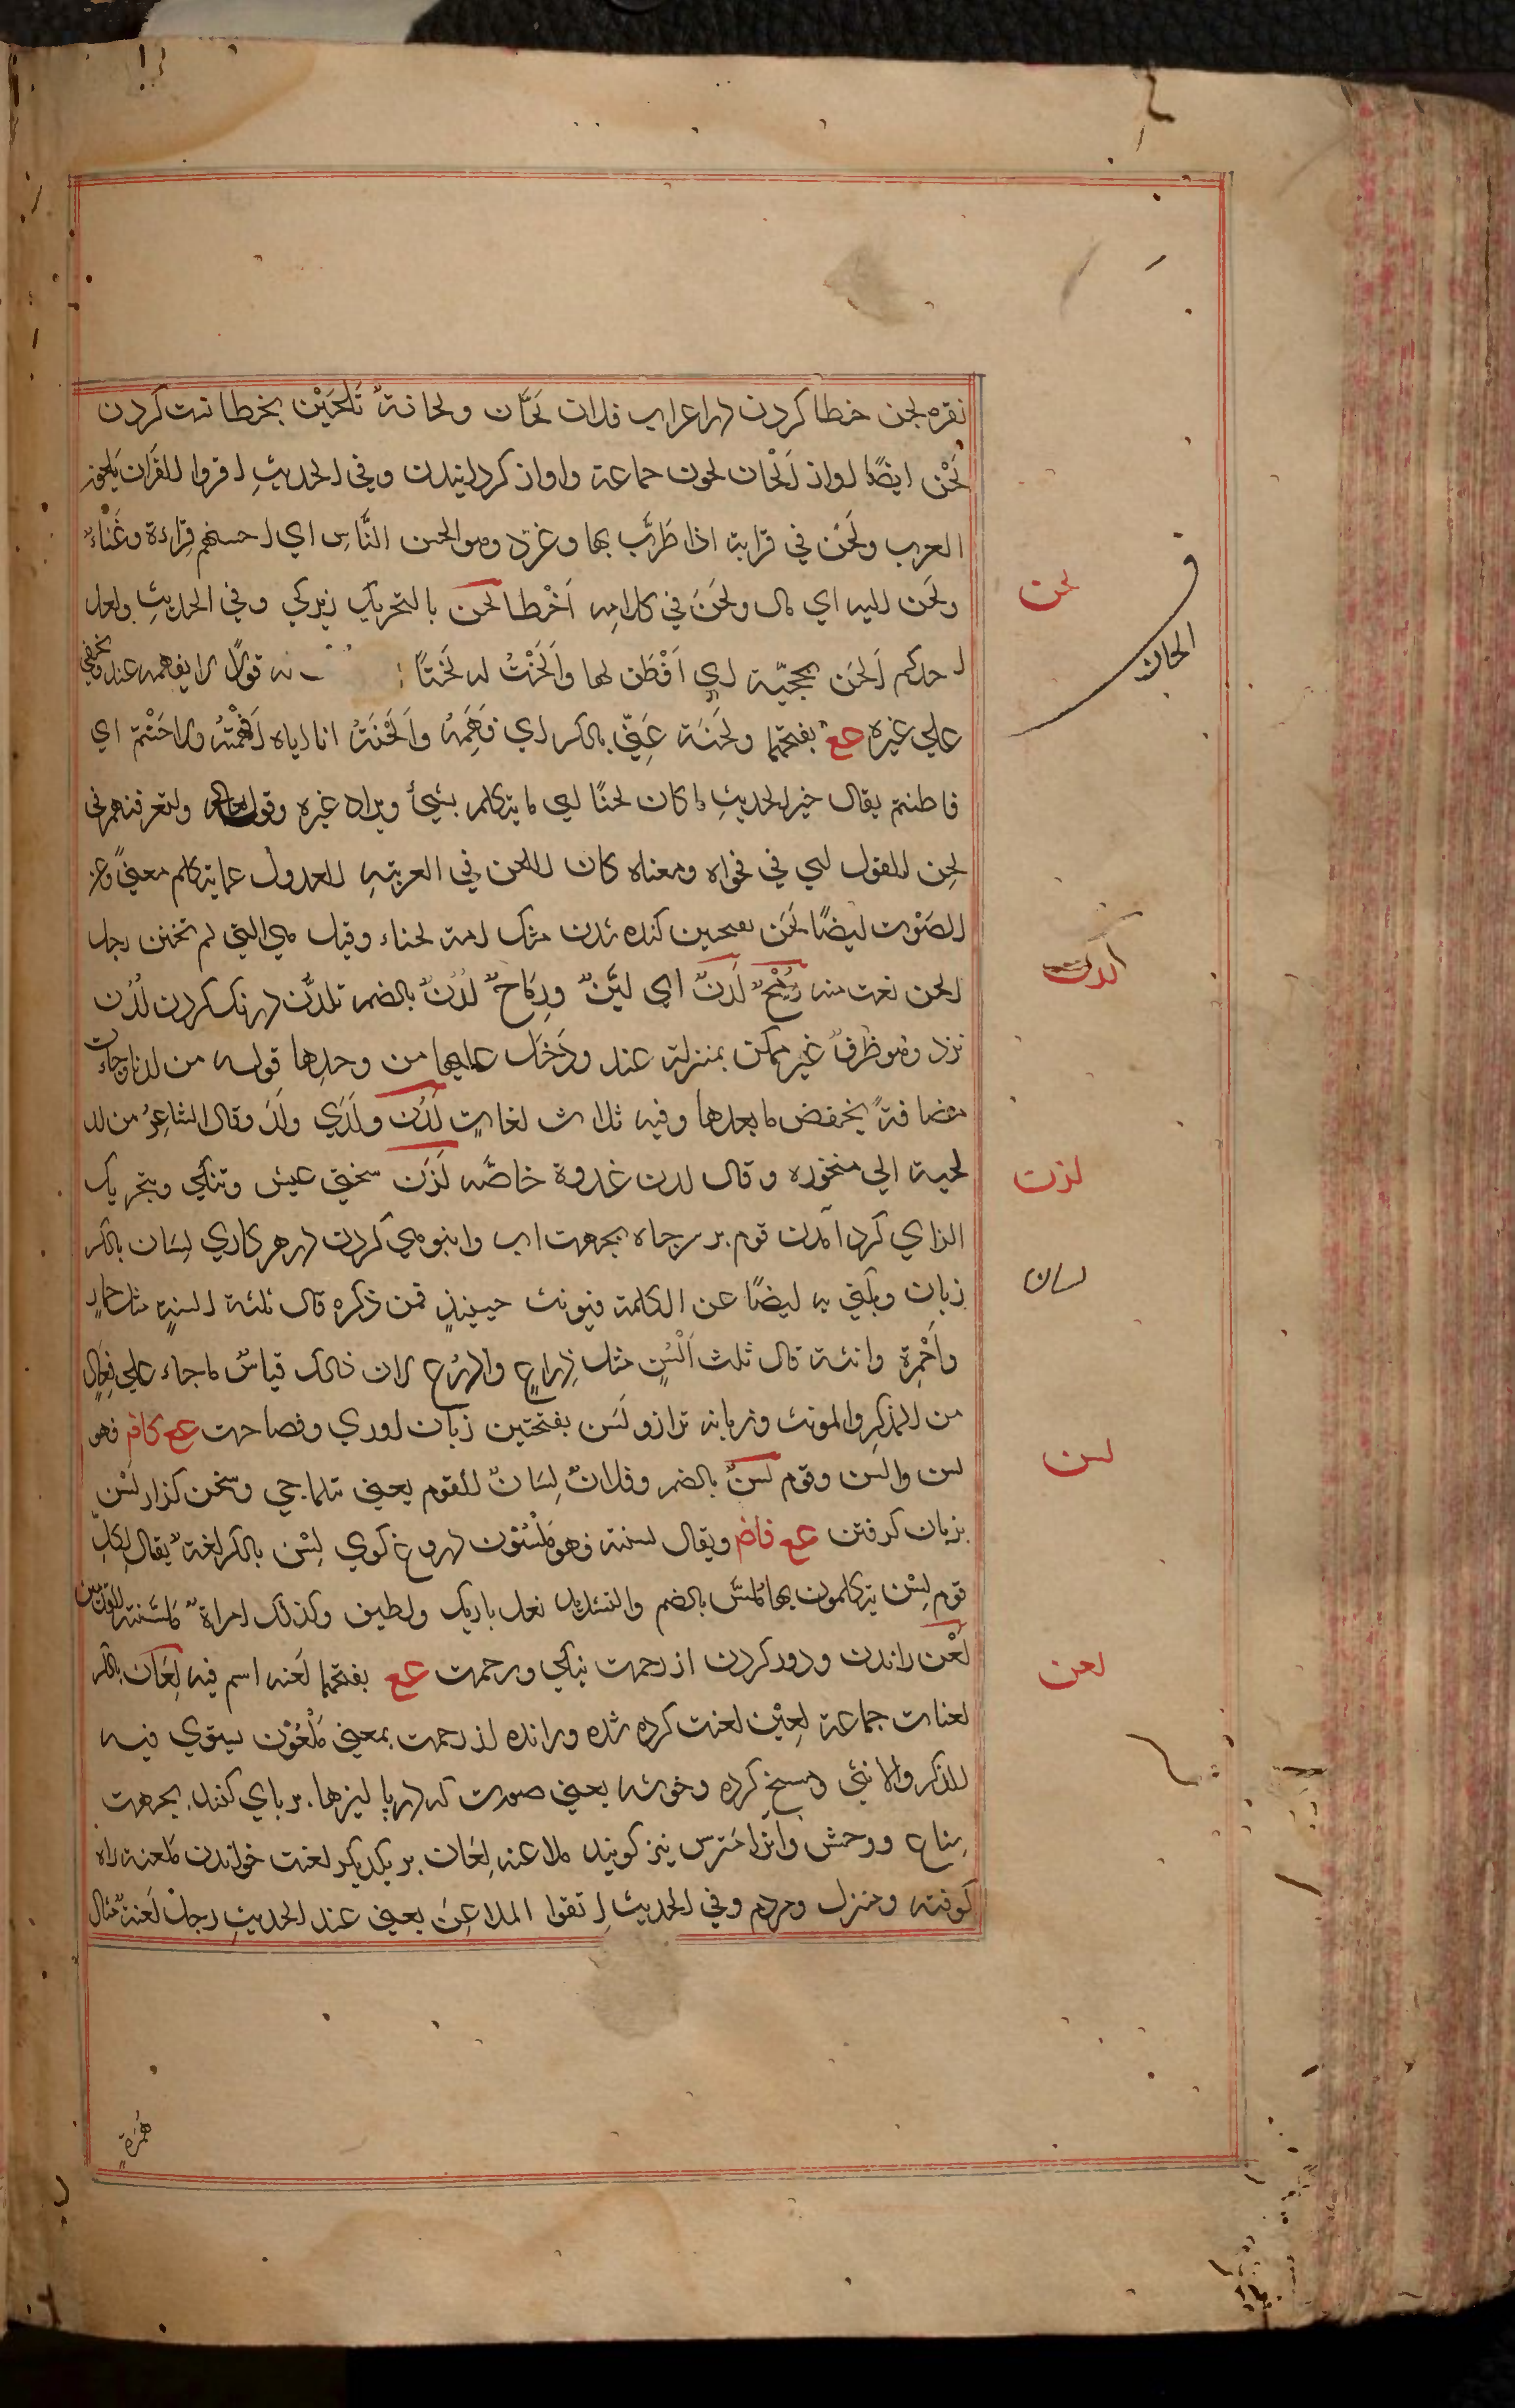 نقره لحن خطا کردن در اعراب فلان لَحَّان ولحانةٌ تَلْحِیْن بخطا نسبت کردن
لَحْن ایضًا اواز اَلْحَان لحون جماعة واواز کردانیدن وفي الحدیثِ اقروا القرآن بلحون
العرب ولَحَن في قرایة اذا طَرَّب بها وغرّد وهو الحن النَّاسِ اي احسنهم قِراءة وغناءً
ولَحَن الیه اي مال ولَحَنَ في کلامه اَخْطا لحن بالتحریك زیرکي وفي الحدیثِ ولعل
احدکم اَلحَن بحجّته اي اَفْطَن لها واَلْحَنْتُ له لَحْنًا قولًا لا یفهمه عنك ویخفی
علي غیره عع بفتحهما ولَحِنَه عَنِّي بالکسر اي فَهِمَهُ واَلْحَنْتُهُ انا ایاه اَفْهَمْتُهُ ولاحَنْتُم اي
فاطنتم یقال خیر الحدیثِ ما کان لحنًا اي ما یتکلم بشيءٍ ویراد غیره وقوله ولتعرفنهم في
لحن القول اي في فحواه ومعناه کان اللحن في العربیة العدول عما یتکلم معنیً وعن
الصَوْت ایضًا لَخَن کنده شدن مشك امة لخناء وقیل هي التي لم تختن رجل
الخن نعت منه رُمْحٌ لَدْنٌ اي لَیِّنٌ ورِمَاحٌ لُدْنٌ بالضم تلدُّن درنك کردن لَدُن
نزد وهو ظَرفٌ غیر متمکن بمنزلة عند ودَخَل علیها من وحدها قوله من لدنا وجاءت
مضافةً یخفض ما بعدها وفیه ثلاث لغاتٍ لَدُن ولَدَي ولَدُ وقال الشاعِرُ من لد
لحیه الي منخوره وقال لدن غدوة خاصّه لَزَن سختي عیش وتنکي وبتحریك
الزاي کرد آمدن قوم بر سر چاه بجهت اب وانبوهي کردن در هر کاري لِسَان بالکسر
زبان ویکنی به ایضًا عن الکلمة فیونث حینئذٍ فمن ذکره قال ثلثة السنةٍ مثل حمارٍ
واَحْمِرةٍ وانثه قال ثلث اَلْسُنٍ مثل ذِراعٍ واذرُعٍ لان ذالك قیاسُ ما جاء علي فِعالٍ
من المذکرِ والمونث وزبانه ترازو لَسَن بفتحتین زبان اوري وفصاحت عع کافم فهو
لسن والسن وقوم لُسنٌ بالضم وفلانٌ لِسَانٌ القوم یعني وسخن کزار لَسْن
بزبان کرفتن عع فاضم ویقال لسنته فهو مَلْسُوْن دروغ کوي لِسْن بالکسر لغةٌ یقال لِکلِّ
قوم لِسْن یتکلمون بها مُلَسَّن بالضم والتشدید نعل باریك ولطیف وکذلك امراةٌ مُلَسَّنة القدمین
لَعْن راندن ودور کردن از رحمت نیکي ورحمت عع بفتحهما لَعنه اسم فیه لِعَان بالکسر
لعنات جماعة لَعِیْن لعنت کرده شده ورانده از رحمت بمعني مَلْعُوْن یستوي فیه
الذکر والانثي ومسخ کرده وخوشه یعني صورت که در پالیزها بر پاي کنند بجهت
سباع ووحش وآنرا مَترس نیز کویند ملاعنه لِعَان بر یکدیکر لعنت خواندن مَلعنه راه
کوفته ومنزل ومردم وفي الحدیث اِتقوا الملاعِنَ یعني عند الحدیثِ رجلٌ لُعَنةٌ مثال
لحن
الحان
لدن
لزن
لسان
لسن
لعن
هُمَزَةٍ